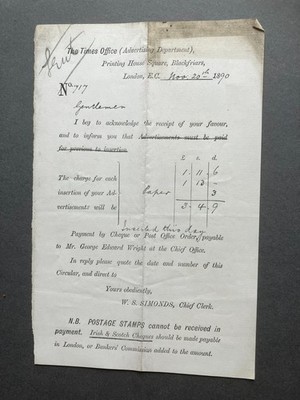 The Times Office (Advertising Department),
Printing House Square, Blackfriars,
London, E.C. Nov. 20th 1890
No. 717
Gentlemen
I beg to acknowledge the receipt of your favour,
and to inform you that Advertisements must be paid
for previous to insertion.
£ s. d.
The charge for each 1 . 11 . 6
insertion of your Ad- 1 . 13 . -
vertisements will be Paper 3
3 . 4 . 9
Inserted this day
Payment by Cheque or Post Office Order, payable
to Mr. George Edward Wright at the Chief Office.
In reply please quote the date and number of this
Circular, and direct to
Yours obediently,
W. S. SIMONDS, Chief Clerk.
N.B. POSTAGE STAMPS cannot be received in
payment. Irish & Scotch Cheques should be made payable
in London, or Bankers' Commission added to the amount.